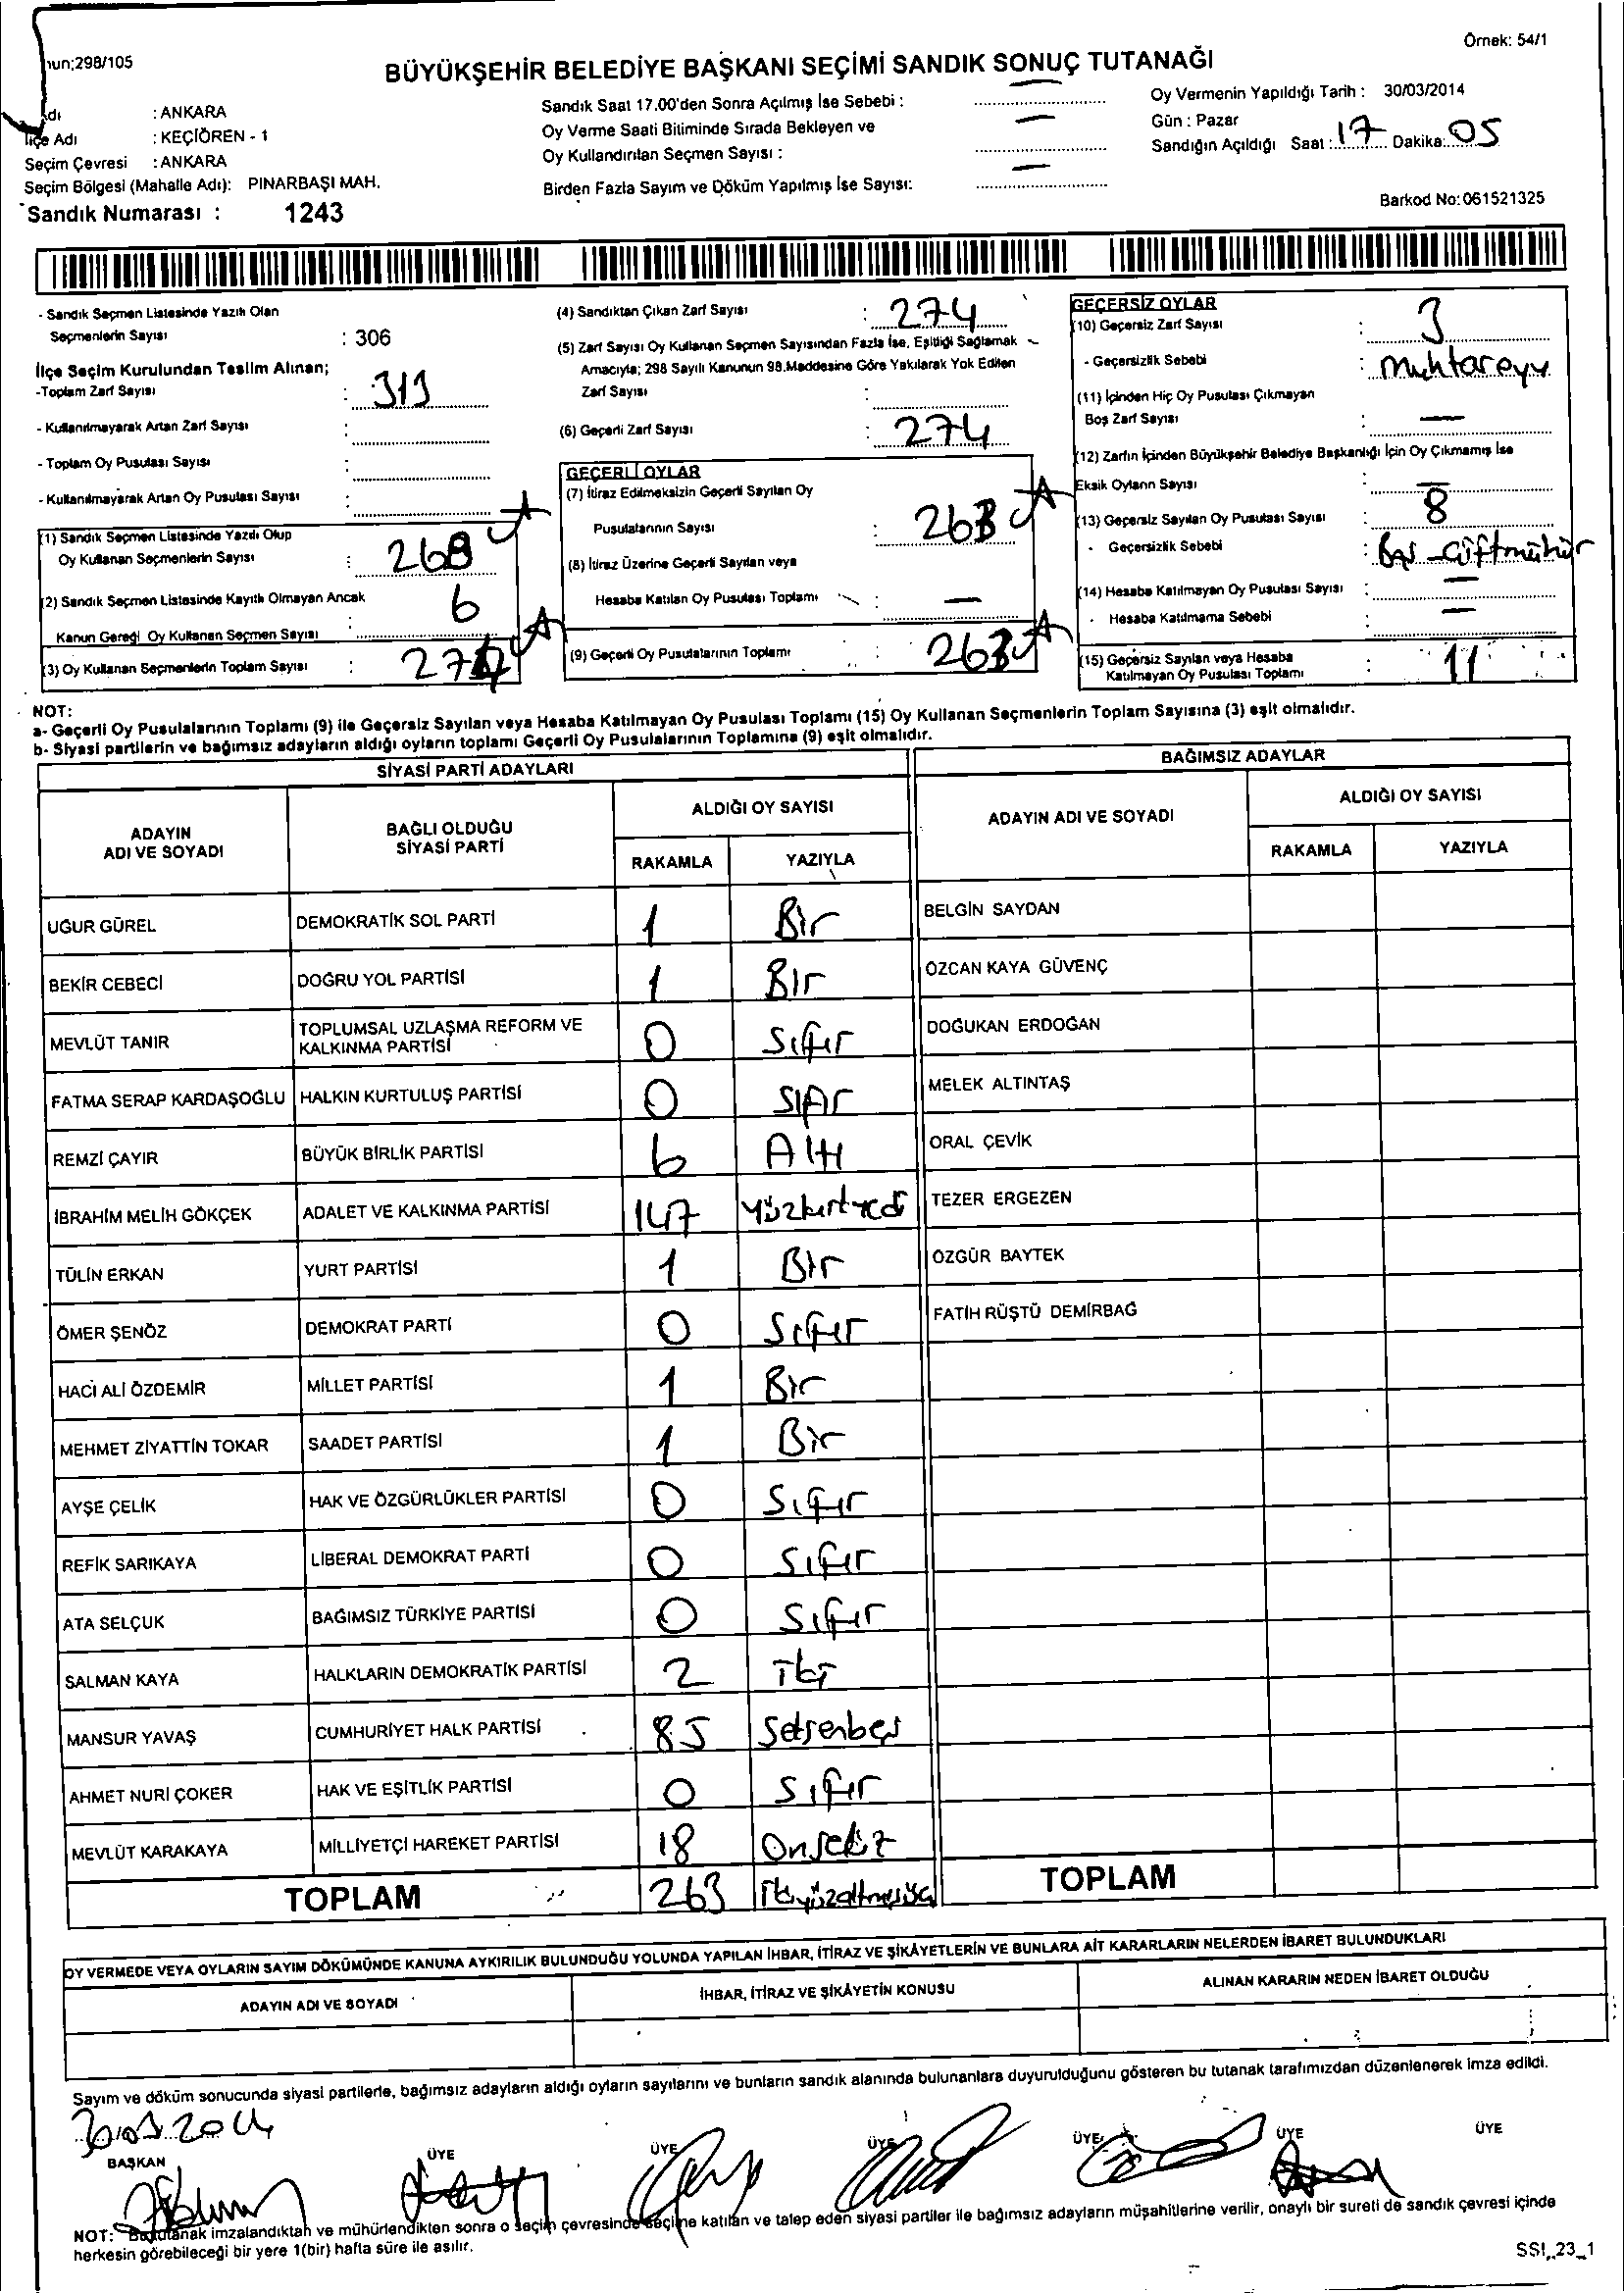 Örnek: 54/1
nun;298/105
BÜYÜKŞEHİR BELEDİYE BAŞKANI SEÇİMİ SANDIK SONUÇ TUTANAĞI
Adı : ANKARA
İlçe Adı : KEÇİÖREN - 1
Seçim Çevresi : ANKARA
Seçim Bölgesi (Mahalle Adı): PINARBAŞI MAH.
Sandık Numarası : 1243
Sandık Saat 17.00'den Sonra Açılmış İse Sebebi : —
Oy Verme Saati Bitiminde Sırada Bekleyen ve
Oy Kullandırılan Seçmen Sayısı : —
Birden Fazla Sayım ve Döküm Yapılmış İse Sayısı: —
Oy Vermenin Yapıldığı Tarih : 30/03/2014
Gün : Pazar
Sandığın Açıldığı Saat : 17 Dakika: 05
Barkod No: 061521325
- Sandık Seçmen Listesinde Yazılı Olan
Seçmenlerin Sayısı : 306
İlçe Seçim Kurulundan Teslim Alınan;
-Toplam Zarf Sayısı : 313
- Kullanılmayarak Artan Zarf Sayısı :
- Toplam Oy Pusulası Sayısı :
- Kullanılmayarak Artan Oy Pusulası Sayısı :
(1) Sandık Seçmen Listesinde Yazılı Olup
Oy Kullanan Seçmenlerin Sayısı : 268
(2) Sandık Seçmen Listesinde Kayıtlı Olmayan Ancak
Kanun Gereği Oy Kullanan Seçmen Sayısı : 6
(3) Oy Kullanan Seçmenlerin Toplam Sayısı : 274
(4) Sandıktan Çıkan Zarf Sayısı : 274
(5) Zarf Sayısı Oy Kullanan Seçmen Sayısından Fazla İse, Eşitliği Sağlamak
Amacıyla; 298 Sayılı Kanunun 98.Maddesine Göre Yakılarak Yok Edilen
Zarf Sayısı :
(6) Geçerli Zarf Sayısı : 274
GEÇERLİ OYLAR
(7) İtiraz Edilmeksizin Geçerli Sayılan Oy
Pusulalarının Sayısı : 263
(8) İtiraz Üzerine Geçerli Sayılan veya
Hesaba Katılan Oy Pusulası Toplamı : —
(9) Geçerli Oy Pusulalarının Toplamı : 263
GEÇERSİZ OYLAR
(10) Geçersiz Zarf Sayısı : 3
- Geçersizlik Sebebi : Muhtaroyu
(11) İçinden Hiç Oy Pusulası Çıkmayan
Boş Zarf Sayısı : —
(12) Zarfın İçinden Büyükşehir Belediye Başkanlığı İçin Oy Çıkmamış İse
Eksik Oyların Sayısı : —
(13) Geçersiz Sayılan Oy Pusulası Sayısı : 8
- Geçersizlik Sebebi : Boş - Çiftmühür
(14) Hesaba Katılmayan Oy Pusulası Sayısı : —
- Hesaba Katılmama Sebebi : —
(15) Geçersiz Sayılan veya Hesaba
Katılmayan Oy Pusulası Toplamı : 11
NOT:
a- Geçerli Oy Pusulalarının Toplamı (9) ile Geçersiz Sayılan veya Hesaba Katılmayan Oy Pusulası Toplamı (15) Oy Kullanan Seçmenlerin Toplam Sayısına (3) eşit olmalıdır.
b- Siyasi partilerin ve bağımsız adayların aldığı oyların toplamı Geçerli Oy Pusulalarının Toplamına (9) eşit olmalıdır.
SİYASİ PARTİ ADAYLARI
ADAYIN ADI VE SOYADI BAĞLI OLDUĞU SİYASİ PARTİ ALDIĞI OY SAYISI
RAKAMLA YAZIYLA
UĞUR GÜREL DEMOKRATİK SOL PARTİ 1 Bir
BEKİR CEBECİ DOĞRU YOL PARTİSİ 1 Bir
MEVLÜT TANIR TOPLUMSAL UZLAŞMA REFORM VE KALKINMA PARTİSİ 0 Sıfır
FATMA SERAP KARDAŞOĞLU HALKIN KURTULUŞ PARTİSİ 0 Sıfır
REMZİ ÇAYIR BÜYÜK BİRLİK PARTİSİ 6 Altı
İBRAHİM MELİH GÖKÇEK ADALET VE KALKINMA PARTİSİ 147 Yüzkırkyedi
TÜLİN ERKAN YURT PARTİSİ 1 Bir
ÖMER ŞENÖZ DEMOKRAT PARTİ 0 Sıfır
HACI ALİ ÖZDEMİR MİLLET PARTİSİ 1 Bir
MEHMET ZİYATTİN TOKAR SAADET PARTİSİ 1 Bir
AYŞE ÇELİK HAK VE ÖZGÜRLÜKLER PARTİSİ 0 Sıfır
REFİK SARIKAYA LİBERAL DEMOKRAT PARTİ 0 Sıfır
ATA SELÇUK BAĞIMSIZ TÜRKİYE PARTİSİ 0 Sıfır
SALMAN KAYA HALKLARIN DEMOKRATİK PARTİSİ 2 İki
MANSUR YAVAŞ CUMHURİYET HALK PARTİSİ 85 Seksenbeş
AHMET NURİ ÇOKER HAK VE EŞİTLİK PARTİSİ 0 Sıfır
MEVLÜT KARAKAYA MİLLİYETÇİ HAREKET PARTİSİ 18 Onsekiz
TOPLAM 263 İkiyüzaltmışüç
BAĞIMSIZ ADAYLAR
ADAYIN ADI VE SOYADI ALDIĞI OY SAYISI
RAKAMLA YAZIYLA
BELGİN SAYDAN
ÖZCAN KAYA GÜVENÇ
DOĞUKAN ERDOĞAN
MELEK ALTINTAŞ
ORAL ÇEVİK
TEZER ERGEZEN
ÖZGÜR BAYTEK
FATİH RÜŞTÜ DEMİRBAĞ
TOPLAM
OY VERMEDE VEYA OYLARIN SAYIM DÖKÜMÜNDE KANUNA AYKIRILIK BULUNDUĞU YOLUNDA YAPILAN İHBAR, İTİRAZ VE ŞİKÂYETLERİN VE BUNLARA AİT KARARLARIN NELERDEN İBARET BULUNDUKLARI
ADAYIN ADI VE SOYADI İHBAR, İTİRAZ VE ŞİKÂYETİN KONUSU ALINAN KARARIN NEDEN İBARET OLDUĞU
Sayım ve döküm sonucunda siyasi partilerle, bağımsız adayların aldığı oyların sayılarını ve bunların sandık alanında bulunanlara duyurulduğunu gösteren bu tutanak tarafımızdan düzenlenerek imza edildi.
BAŞKAN ÜYE ÜYE ÜYE ÜYE ÜYE ÜYE
NOT: Bu tutanak imzalandıktan ve mühürlendikten sonra o seçim çevresinde seçime katılan ve talep eden siyasi partiler ile bağımsız adayların müşahitlerine verilir, onaylı bir sureti de sandık çevresi içinde
herkesin görebileceği bir yere 1(bir) hafta süre ile asılır.
SSI_23_1